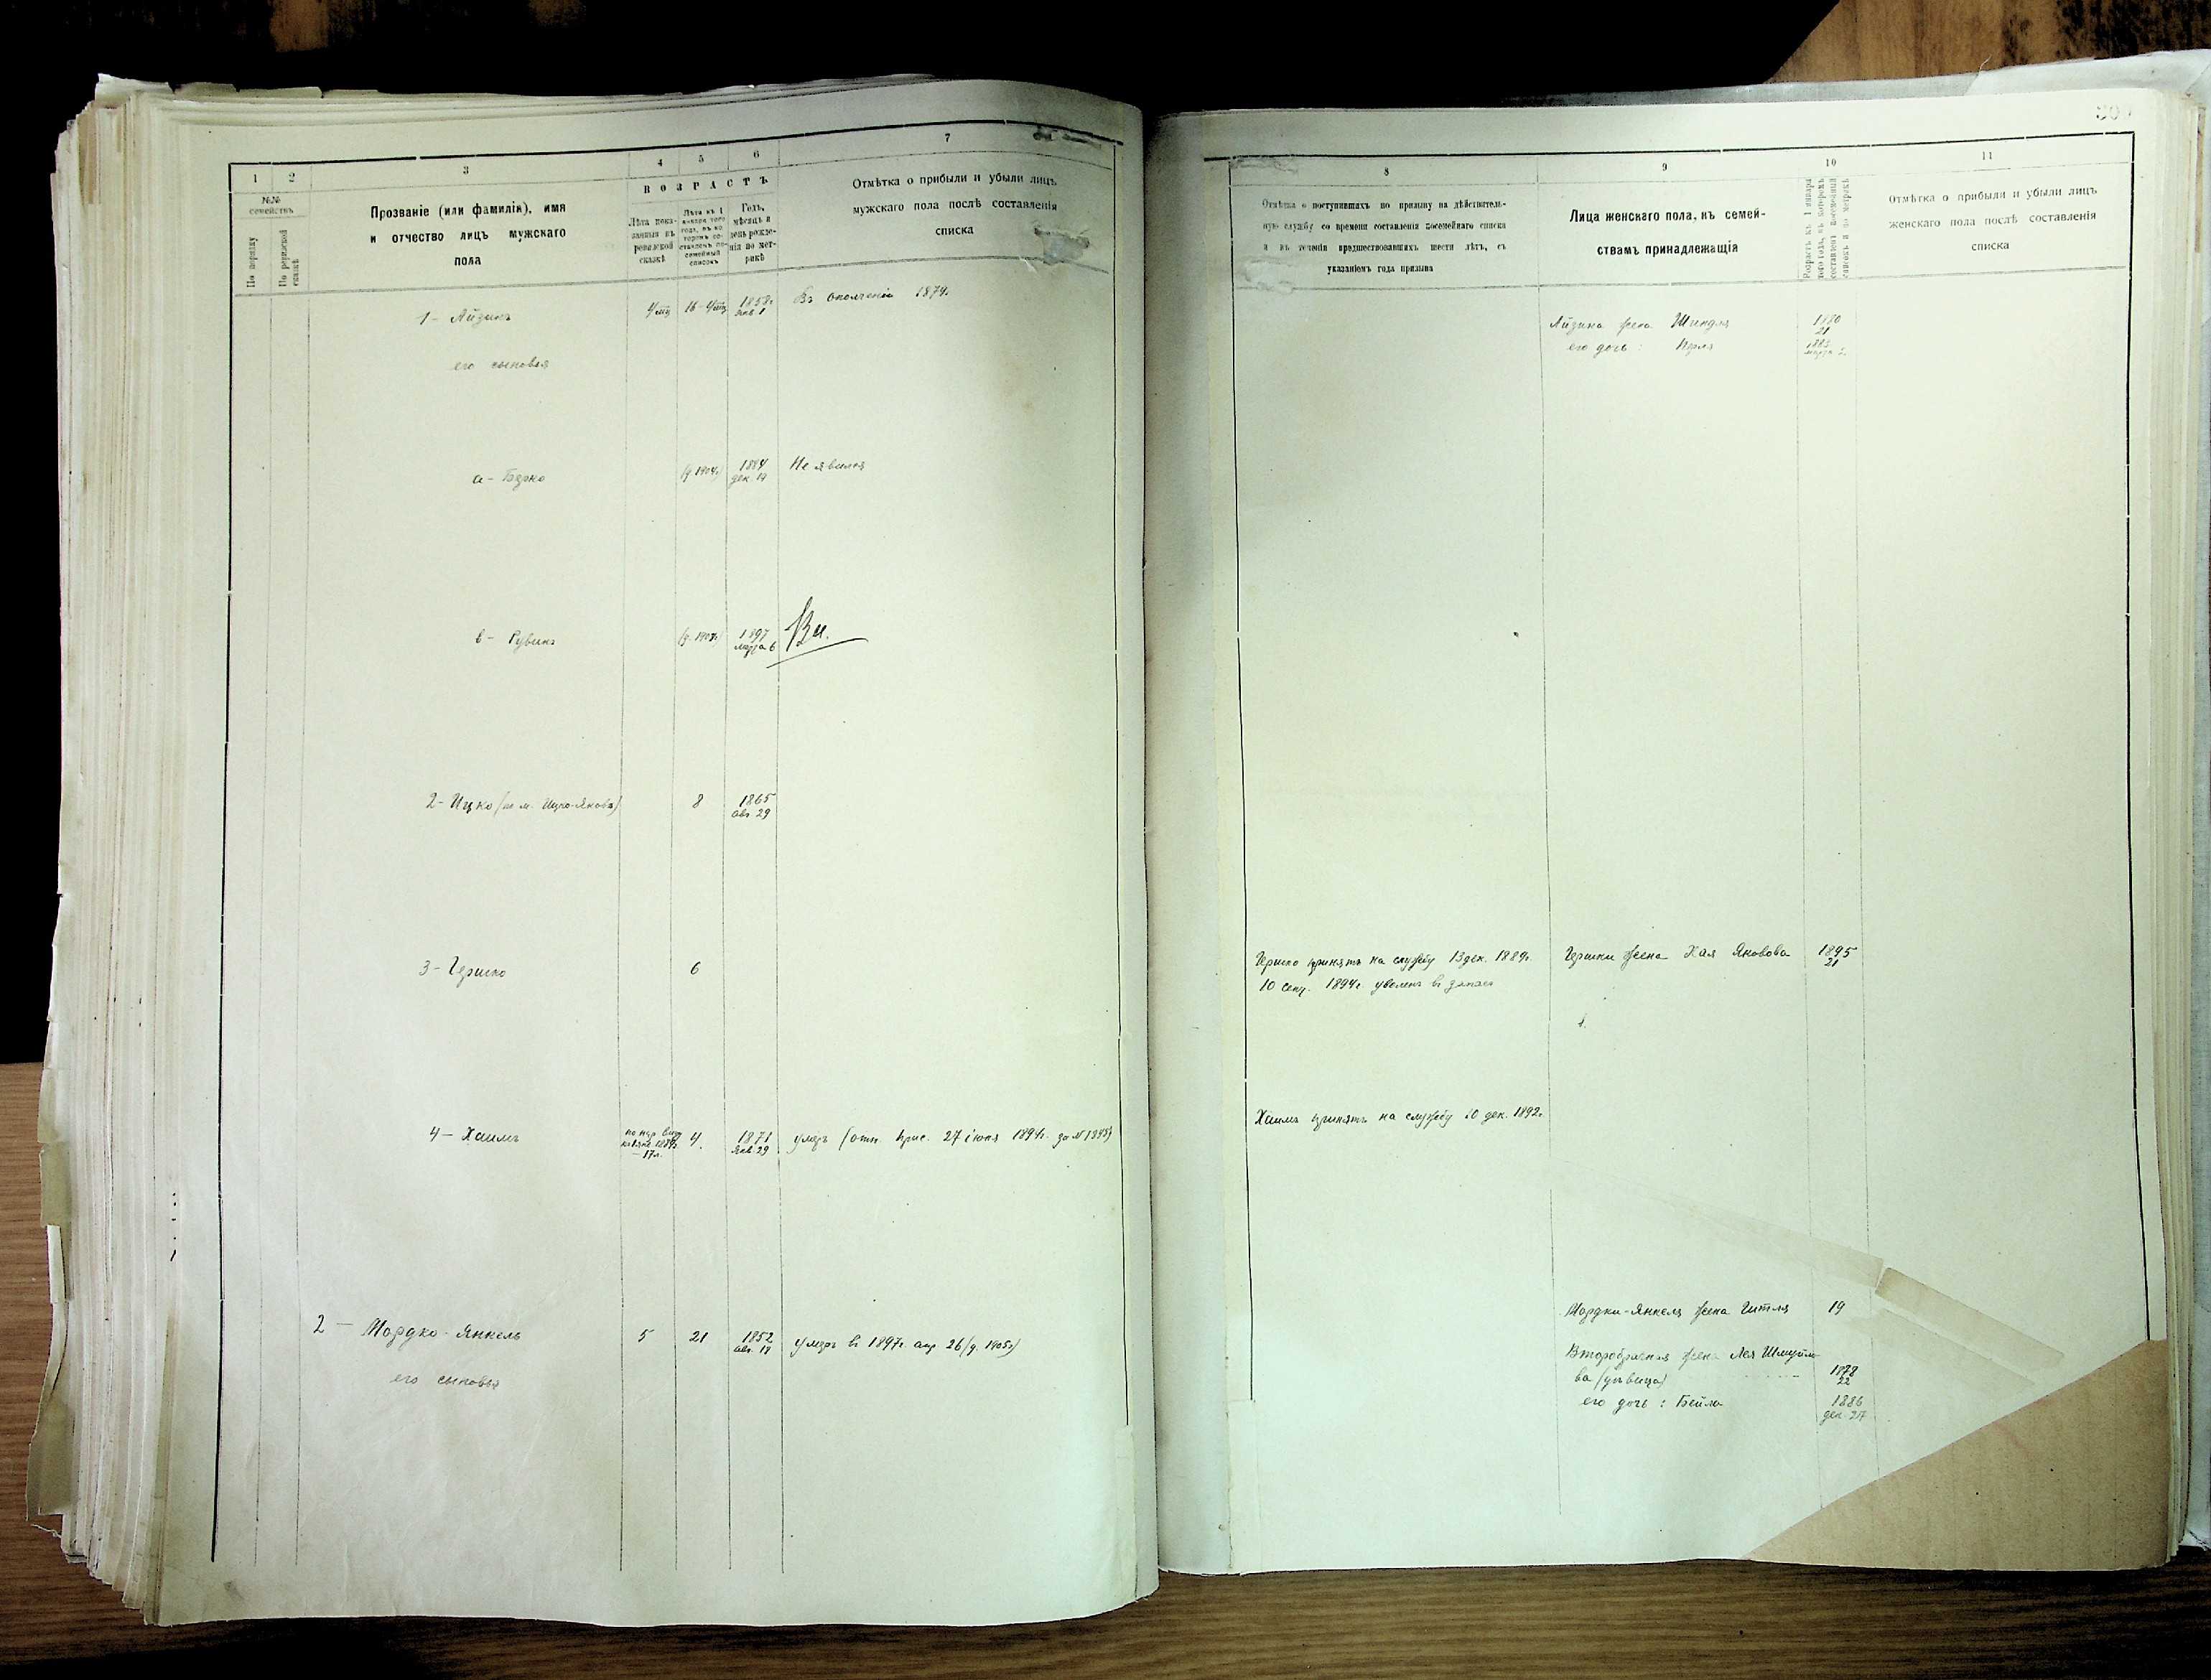 1 2 3 4 5 6 7
№№ семействъ
По порядку
По ревизской сказкѣ
Прозваніе (или фамилія), имя
и отчество лицъ мужскаго
пола
ВОЗРАСТЪ
Лѣта пока-
занныя въ
ревизской
сказкѣ
Лѣта къ 1
января того
года, въ ко
торомъ со-
ставленъ по-
семейный
списокъ
Годъ,
мѣсяцъ и
день рожде-
нія по мет-
рикѣ
Отмѣтка о прибыли и убыли лицъ
мужскаго пола послѣ составленія
списка
1 - Айзикъ 4 мц 16-4мц 1858г Въ ополченіи 1874г.
янв. 1
его сыновья
а - Берко (д. 1904г) 1884 Не явился
дек. 19
в - Рувинъ 1897
марта 6
2 - Ицко (по м. Ицко-Яковъ) 8 1865
авг. 29
3 - Гершко 6
4 - Хаимъ 4. 1871 умеръ (отн. 27 іюня 1894г. за № 1895)
янв. 29
17 л.
2 - Мордко-Янкель 5 21 1852 умеръ въ 1897г. апр. 26 (д. 1905г)
авг. 18
его сыновья
8 9 10 11
Отмѣтка о поступившихъ по призыву на дѣйствитель-
ную службу со времени составленія посемейнаго списка
и въ теченіи предшествовавшихъ шести лѣтъ, съ
указаніемъ года призыва
Лица женскаго пола, къ семей-
ствамъ принадлежащія
Возрастъ къ 1 января
того года, въ которомъ
составленъ посемейный
списокъ и по метрикѣ
Отмѣтка о прибыли и убыли лицъ
женскаго пола послѣ составленія
списка
Айзика жена Шиндля 1880
21
его дочь: Перля
марта 2
Гершко принятъ на службу 13 дек. 1889г. Гершки жена Хая Яковова 1895
21
10 сент. 1894г уволенъ въ запасъ
Хаимъ принятъ на службу 10 дек. 1892г
Мордки-Янкеля жена Гитля 19
Второбрачная жена Лея Шмуйло-
ва (дѣвица) 1878
22
его дочь: Бейла 1886
дек. 27